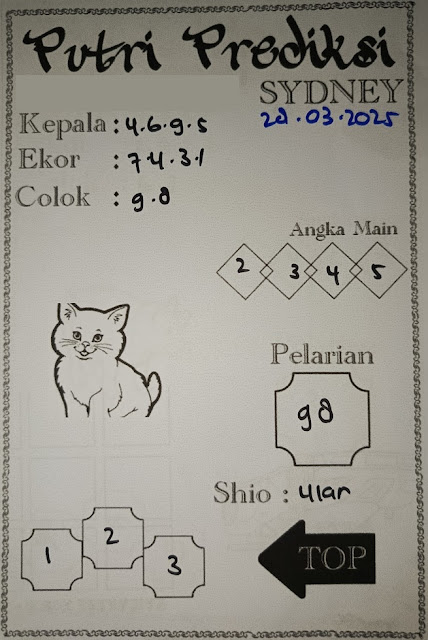 Putri Prediksi
SYDNEY
28.03.2025
Kepala : 4.6.9.5
Ekor : 7.4.3.1
Colok : 9.8
Angka Main
2 3 4 5
Pelarian
98
Shio : Ular
1 2 3
TOP